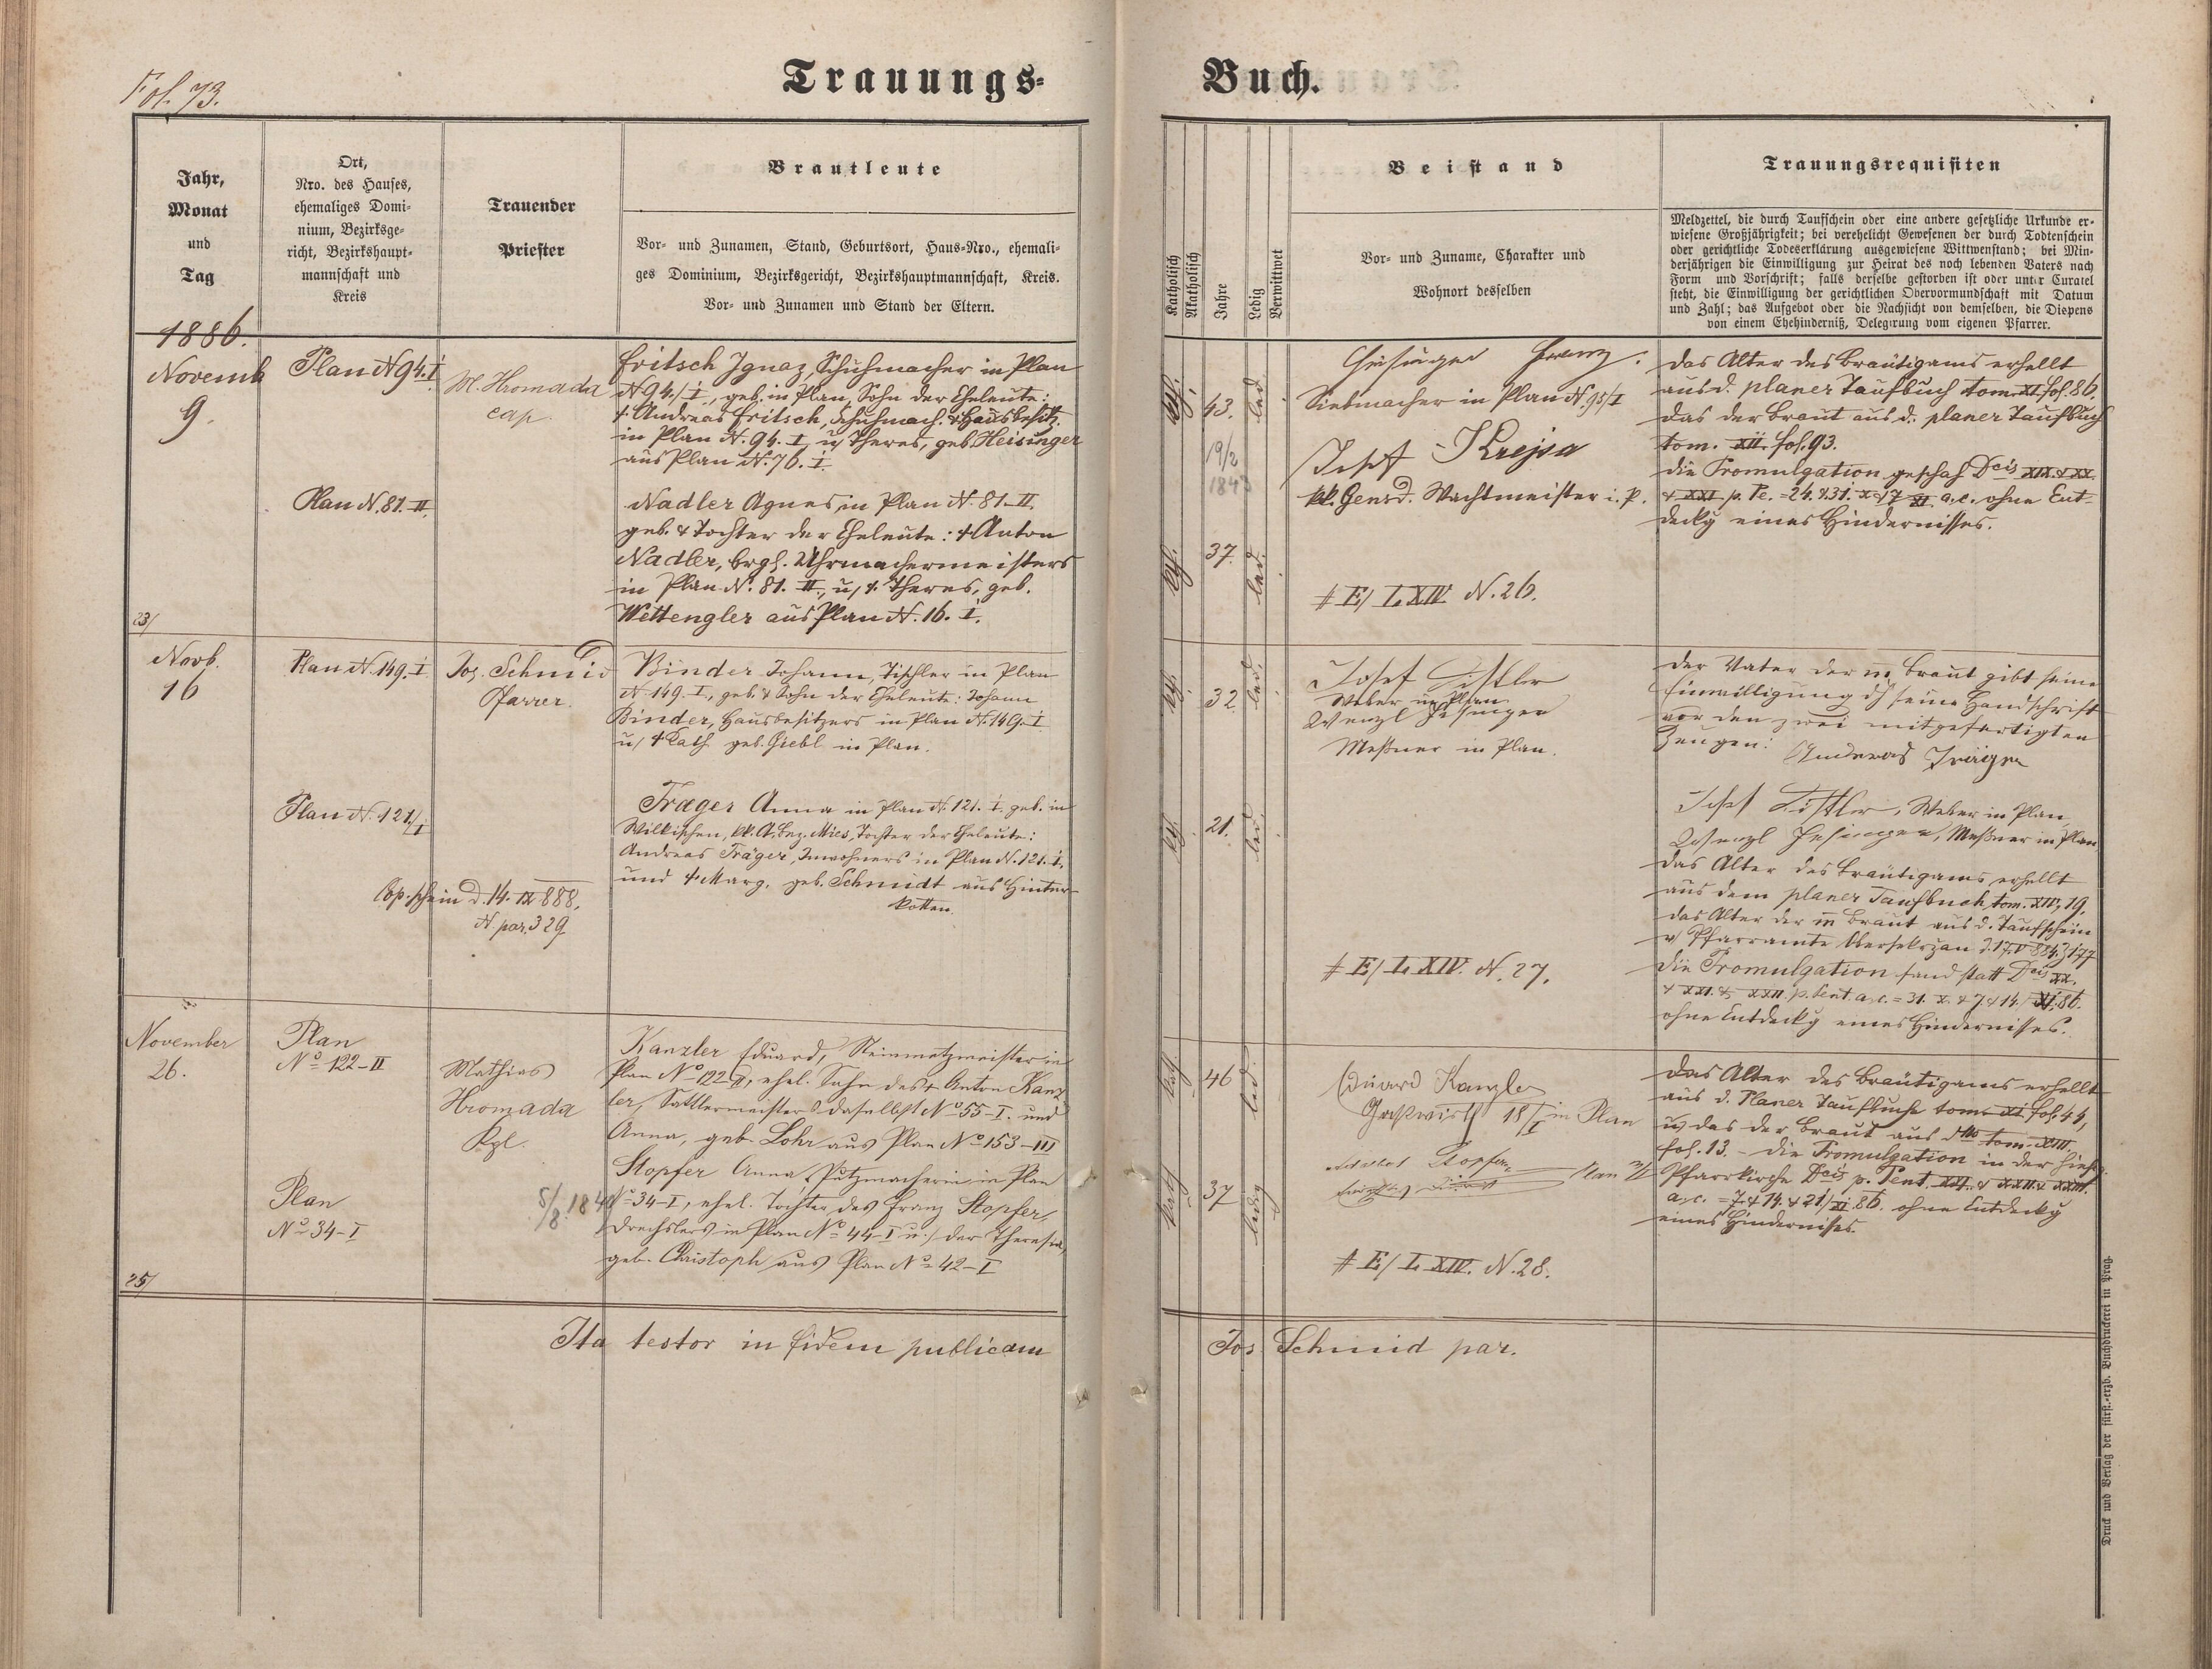 Fol. 73.
Trauungs-
Buch.
Jahr,
Monat
und
Tag
Ort,
Nro. des Hauses,
ehemaliges Domi-
nium, Bezirksge-
richt, Bezirkshaupt-
mannschaft und
Kreis
Trauender
Priester
Brautleute
Vor- und Zunamen, Stand, Geburtsort, Haus-Nro., ehemali-
ges Dominium, Bezirksgericht, Bezirkshauptmannschaft, Kreis.
Vor- und Zunamen und Stand der Eltern.
Katholisch
Akatholisch
Jahre
Ledig
Verwittwet
Beistand
Vor- und Zuname, Charakter und
Wohnort desselben
Trauungsrequisiten
Meldzettel, die durch Taufschein oder eine andere gesetzliche Urkunde er-
wiesene Großjährigkeit; bei verehelicht Gewesenen der durch Todtenschein
oder gerichtliche Todeserklärung ausgewiesene Wittwenstand; bei Min-
derjährigen die Einwilligung zur Heirat des noch lebenden Vaters nach
Form und Vorschrift; falls derselbe gestorben ist oder unter Curatel
steht, die Einwilligung der gerichtlichen Obervormundschaft mit Datum
und Zahl; das Aufgebot oder die Nachsicht von demselben, die Dispens
von einem Ehehinderniß, Delegirung vom eigenen Pfarrer.
1886.
Novemb
9.
Plan N 94. I
M. Hromada
cap.
Fritsch Ignaz, Schuhmacher in Plan
N 94./I., geb. in Plan, Sohn der Eheleute:
† Andreas Fritsch, Schuhmach. & Hausbesitz.
in Plan N. 94. I u/ Theres, geb. Heisinger
aus Plan N. 76. I.
Plan N. 81. II.
Nadler Agnes in Plan N. 81. II.
geb. & Tochter der Eheleute: † Anton
Nadler, brgl. Uhrmachermeisters
in Plan N. 81. II., u/ †. Theres, geb.
Wettengler aus Plan N. 16. I.
23/
kath.
43.
led.
19/2
1843
kath.
37.
led.
Franz
Siebmacher in Plan N. 95/I
Josef Krejsa
kk. Gensd. Wachtmeister i. P.
# E/ L XIV N. 26.
Das Alter des Bräutigams erhellt
aus d. planer Taufbuch tom. XI. fol. 86.
das der Braut aus d. planer Taufbuch
tom. XII. fol. 93.
die Promulgation geschah Dcis XIX. & XX.
& XXI p. Pe. = 24. & 31. X & 7 XI a. c. ohne Ent-
deckg eines Hindernisses.
Novb.
16
Plan N. 149. I
Jos. Schmid
Pfarrer.
Binder Johann, Tischler in Plan
N. 149. I., geb. & Sohn der Eheleute: Johann
Binder, Hausbesitzers in Plan N. 149. I
u/ † Kath. geb. Giebl in Plan.
Plan N. 121/I
Träger Anna in Plan N. 121. I. geb. in
Wilkischen, kk. A. Bez. Mies, Tochter der Eheleute:
Andreas Träger, Inwohners in Plan N. 121. I.
und † Marg. geb. Schmidt aus Hinter-
kotten.
Cop. schein d. 14. IX 888.
N. par. 329
32.
led.
21.
led.
Weber in Plan
Meßner in Plan.
# E/ L XIV. N. 27.
Der Vater der m. Braut gibt seine
Einwilligung dh seine Handschrift
vor den zwei mitgefertigten
Zeugen:
Andreas Träger
Weber in Plan
Meßner in Plan
das Alter des Bräutigams erhellt
aus dem planer Taufbuch tom. XII, 19.
das Alter der m Braut aus d. Taufschein
v Pfarramte
die Promulgation fand statt Dcis XX.
& XXI. & XXII. p. Pent. a. c. = 31. X. & 7 & 14. XI. 86.
ohne Entdeckg eines Hindernisses.
November
26.
Plan
No 122-II
Mathias
Hromada
Kpl.
Kanzler Eduard, Steinmetzmeister in
Plan No 122-II, ehel. Sohn des † Anton Kanz-
ler, Sattlermeisters daselbst No 55-I. und
Anna, geb. Lohr aus Plan No 153-III
Plan
No 34-I
5/8. 1849
Stopfer Anna, Putzmacherin in Plan
No 34-I, ehel. Tochter des Franz Stopfer,
Drechslers in Plan No 44-I u/ der Theresia,
geb. Christoph aus Plan No 42-I
25/
kath.
46
led.
kath.
37
ledig
Eduard Kanzler
Gastwirth 18/I in Plan
Stopfer
# E/ L XIV. N. 28.
Das Alter des Bräutigams erhellt
aus d. Planer Taufbuche tom. XI. fol. 44,
u/ das der Braut aus dtto tom. XIII.
fol. 13. - die Promulgation in der hies.
Pfarrkirche Dcis p. Pent. XXI. & XXII. & XXIII.
a. c. = 7. & 14. & 21/XI. 86. ohne Entdeckg
eines Hindernisses.
Ita testor in fidem publicam
Jos Schmid par.
Druck und Verlag der fürst.-erzb. Buchdruckerei in Prag.